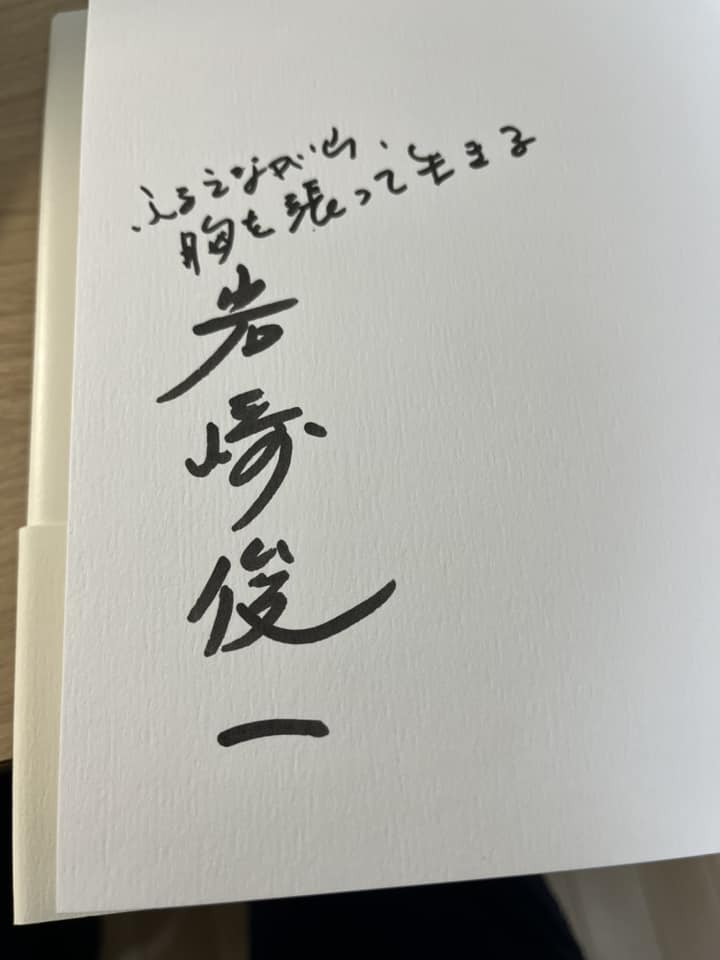 ふるえながら、
胸を張って生きる
岩崎俊一